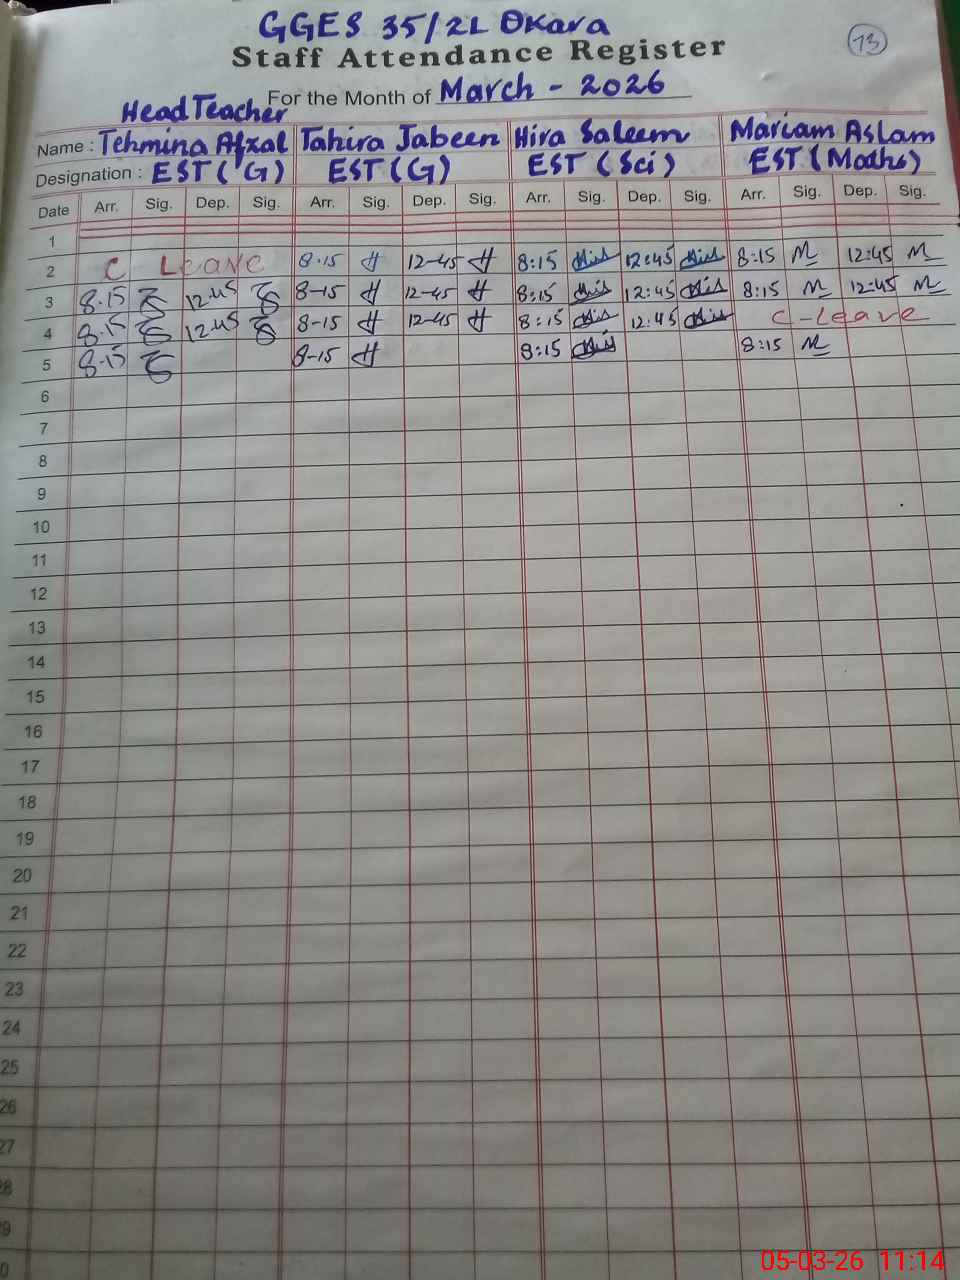 GGES 35/2L Okara
Staff Attendance Register
13
For the Month of March - 2026
Head Teacher
Name : Tehmina Afzal Tahira Jabeen Hira Saleem Mariam Aslam
Designation : EST (G) EST (G) EST (Sci) EST (Maths)
Date Arr. Sig. Dep. Sig. Arr. Sig. Dep. Sig. Arr. Sig. Dep. Sig. Arr. Sig. Dep. Sig.
1
2 C Leave 8-15 12-45 8:15 12:45 8:15 M 12:45 M
3 8.15 12.45 8-15 12-45 8:15 12:45 8:15 M 12:45 M
4 8.15 12.45 8-15 12-45 8:15 12:45 C-leave
5 8.15 8-15 8:15 8:15 M
6
7
8
9
10
11
12
13
14
15
16
17
18
19
20
21
22
23
24
25
26
27
28
29
05-03-26 11:14